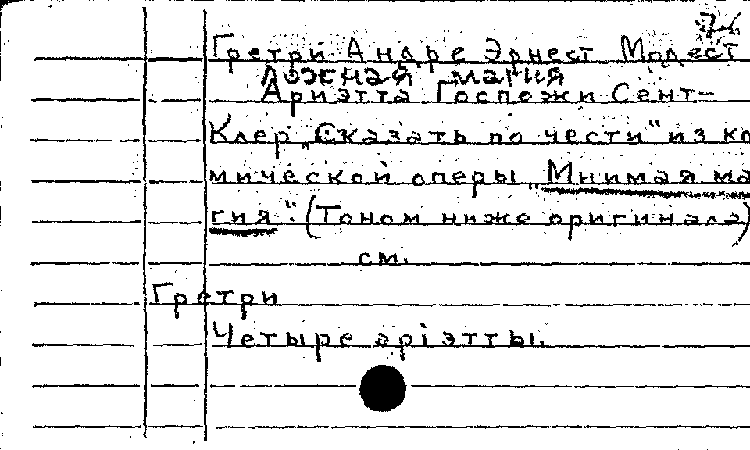 74
Гретри Андре Эрнест Модест
Ложная магия
Ариэтта Госпожи Сент-
Клер „Сказать по чести" из ко
мической оперы „Мнимая ма
гия". (Тоном ниже оригинала)
см.
Гретри
Четыре арiэтты.